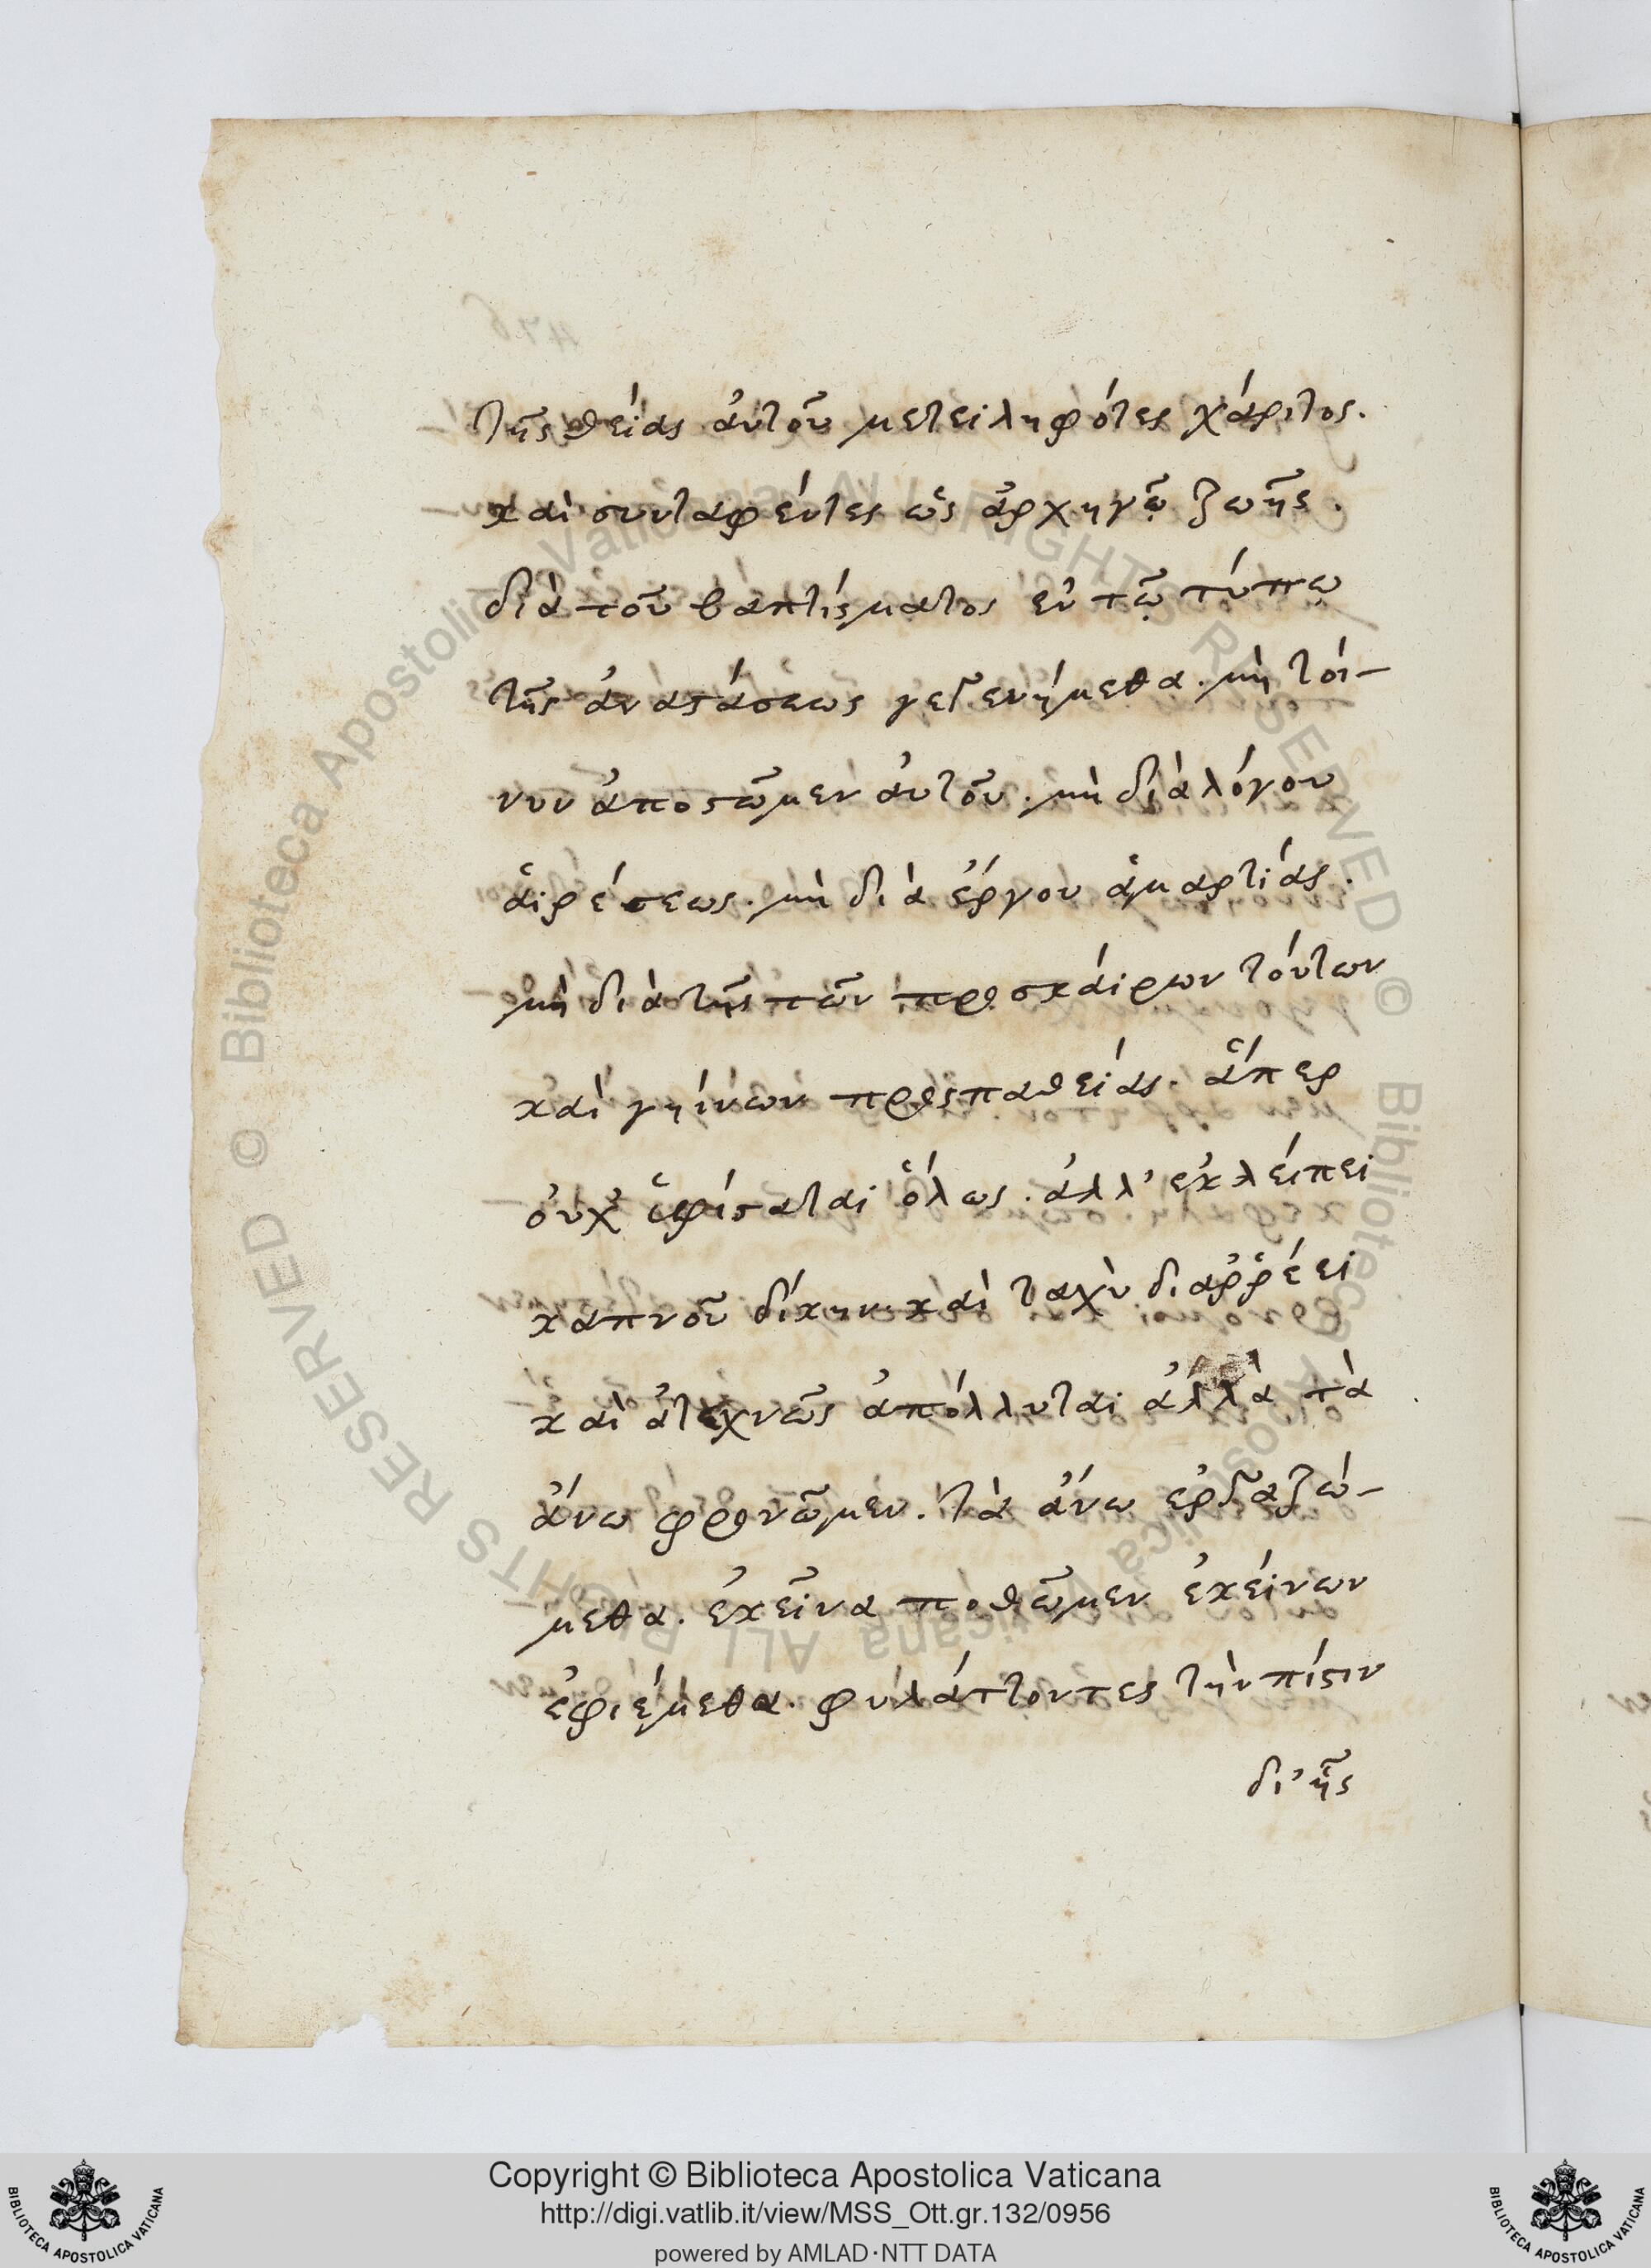 τῆς θείας αὐτοῦ μετειληφότες χάριτος.
καὶ συνταφέντες ὡς ἀρχηγῷ ζωῆς.
διὰ τοῦ βαπτίσματος ἐν τῷ τύπῳ
τῆς ἀναστάσεως γεγενήμεθα. μὴ τοί-
νυν ἀποστῶμεν αὐτοῦ. μὴ διὰ λόγου
αἱρέσεως. μὴ διὰ ἔργου ἁμαρτίας.
μὴ διὰ τῆς τῶν προσκαίρων τούτων
καὶ γηίνων προσπαθείας. ἅπερ
οὐχ ὑφίσταται ὅλως. ἀλλ' ἐκλείπει
καπνοῦ δίκην. καὶ ταχὺ διαῤῥέει
καὶ ἀτεχνῶς ἀπόλλυται ἀλλὰ τὰ
ἄνω φρονῶμεν. τὰ ἄνω ἐργαζώ-
μεθα. ἐκεῖνα ποθῶμεν ἐκείνων
ἐφιέμεθα. φυλάττοντες τὴν πίστιν
δι' ἧς
Copyright © Biblioteca Apostolica Vaticana
http://digi.vatlib.it/view/MSS_Ott.gr.132/0956
powered by AMLAD·NTT DATA
BIBLIOTECA APOSTOLICA VATICANA
BIBLIOTECA APOSTOLICA VATICANA
© Biblioteca Apostolica Vaticana ALL RIGHTS RESERVED © Biblioteca Apostolica Vaticana ALL RIGHTS RESERVED